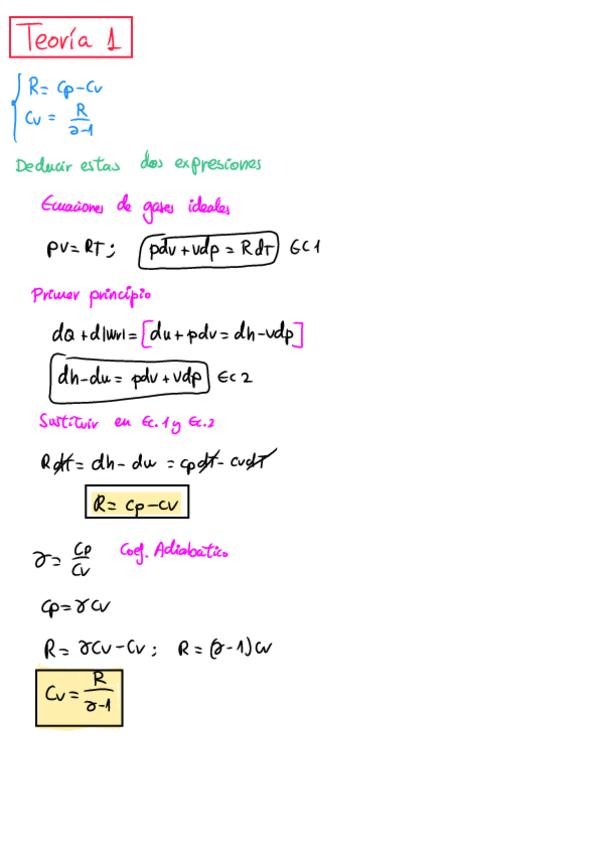 Teoría 1
R = Cp - Cv
Cv = R / γ-1
Deducir estas dos expresiones
Ecuaciones de gases ideales
PV = RT ; pdv + vdp = R dT Ec 1
Primer principio
dQ + d|Wr| = [du + pdv = dh - vdp]
dh - du = pdv + vdp Ec 2
Sustituir en Ec. 1 y Ec. 2
R dT = dh - du = cp dT - cv dT
R = Cp - Cv
γ = Cp / Cv Coef. Adiabatico
Cp = γ Cv
R = γ Cv - Cv ; R = (γ - 1) Cv
Cv = R / γ-1